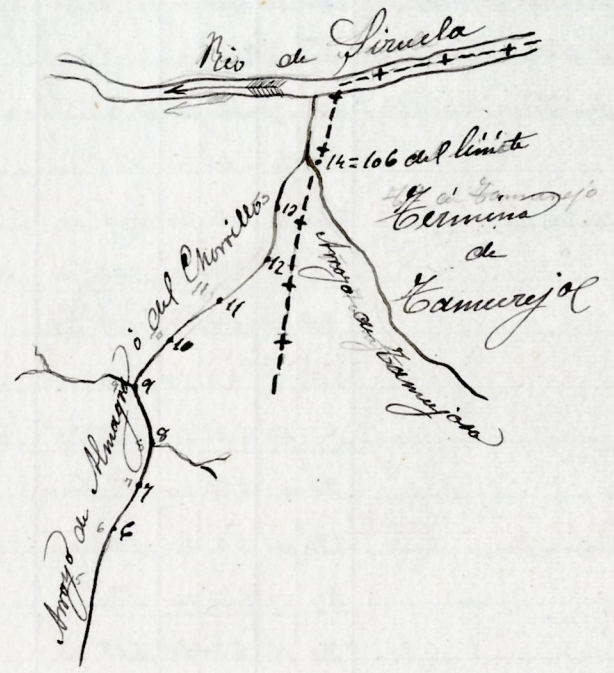 Rio de Siruela
14=106 del límite
Término
de
Tamurejo
13
12
11
10
9
8
7
6
Arroyo de Almagrá ó del Chorrillo
Arroyo de Tamujoso